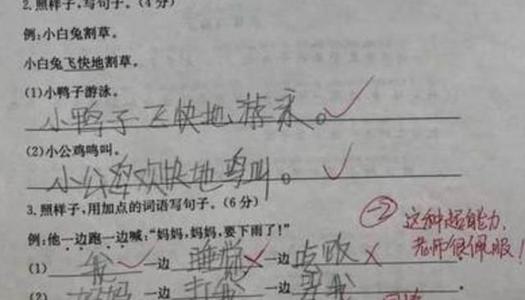 2.照样子,写句子。(4分)
例:小白兔割草。
小白兔飞快地割草。
(1)小鸭子游泳。
小鸭子飞快地游泳。
(2)小公鸡鸣叫。
小公鸡欢快地鸣叫。
3.照样子,用加点的词语写句子。(6分)
例:他一边跑一边喊:“妈妈,妈妈,要下雨了!”
(1) 我 一边 睡觉 一边 走路
-2 这种超能力,
老师很佩服!
(2) 妈妈 一边 打我 一边 骂我